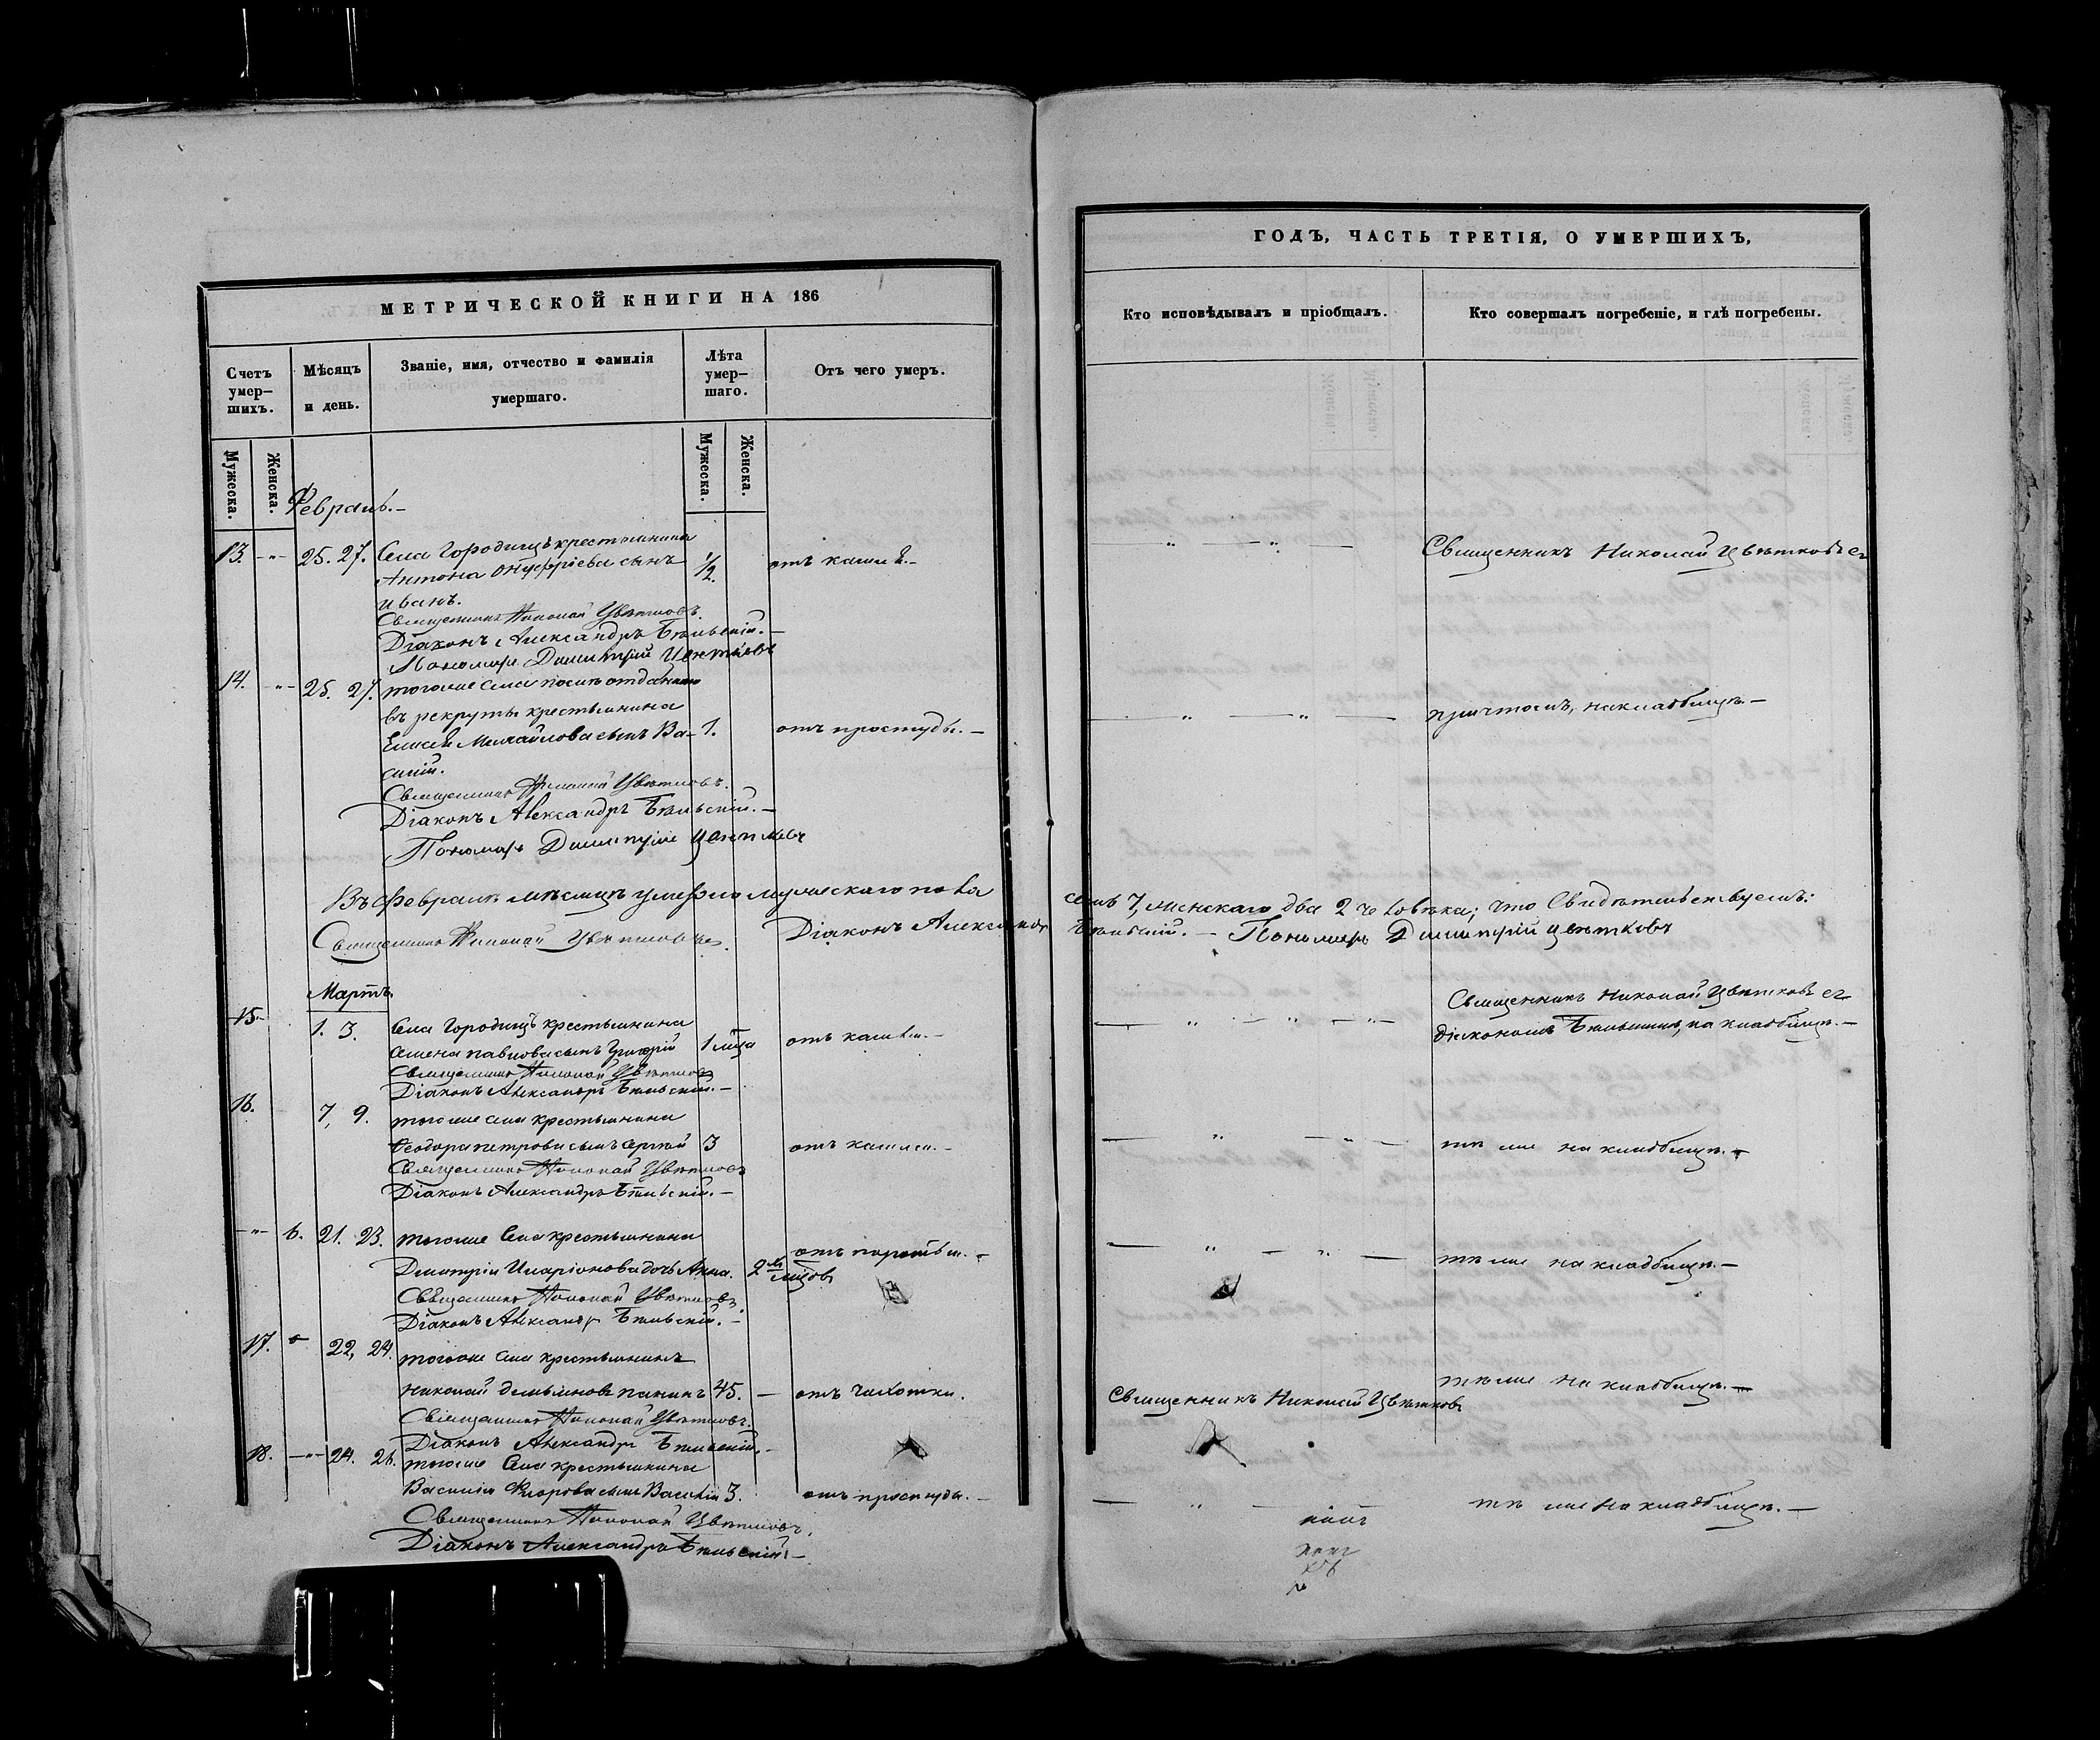 МЕТРИЧЕСКОЙ КНИГИ НА 186
Счетъ умер-
шихъ.
Мѣсяцъ
и день.
Званіе, имя, отчество и фамилія
умершаго.
Лѣта
умер-
шаго.
Отъ чего умеръ.
Мужеска.
Женска.
Мужеска.
Женска.
Февраль.-
13. -"- 25. 27. Села Городищъ крестьянина
Антона Онуфріева сынъ 1/2. отъ кашля.-
Иванъ.
Священникъ Николай Цвѣтковъ.
Діаконъ Александръ Бѣльскій.-
Пономарь Димитрій Цвѣтковъ
14. -"- 25. 27. тогоже села послѣ отданнаго
въ рекруты крестьянина
Елисея Михайлова сынъ Ва- 1. отъ простуды.-
силій.
Священникъ Николай Цвѣтковъ.
Діаконъ Александръ Бѣльскій.-
Пономарь Димитрій Цвѣтковъ
Въ Февралѣ мѣсяцѣ умерло мужескаго пола
Священникъ Николай Цвѣтковъ. Діаконъ Александръ
Мартъ.
15.- 1. 3. Села Городищъ крестьянина
Семена Павлова сынъ Григорій 1 мца отъ кашля.-
Священникъ Николай Цвѣтковъ
Діаконъ Александръ Бѣльскій.-
16. 7, 9. тогоже села крестьянина
Ѳеодора Петрова сынъ Сергѣй 3 отъ кашля.-
Священникъ Николай Цвѣтковъ
Діаконъ Александръ Бѣльскій.-
-"- 6. 21. 23. тогоже Села крестьянина
Димитрія Иларіонова дочь Анна. 2хъ мцовъ отъ
Священникъ Николай Цвѣтковъ.
Діаконъ Александръ Бѣльскій.-
17. 22, 24. тогоже села крестьянинъ
Николай Демьяновъ Панинъ 45. - отъ чахотки.
Священникъ Николай Цвѣтковъ.
Діаконъ Александръ Бѣльскій.-
18. -"- 24. 26. тогоже Села крестьянина
Василія Флорова сынъ Василій 3. отъ простуды.-
Священникъ Николай Цвѣтковъ.
Діаконъ Александръ Бѣльскій.-
ГОДЪ, ЧАСТЬ ТРЕТІЯ, О УМЕРШИХЪ,
Кто исповѣдывалъ и пріобщалъ.
Кто совершалъ погребеніе, и гдѣ погребены.
Священникъ Николай Цвѣтковъ съ
причтомъ, на кладбищѣ.-
семь 7, женскаго два 2 человѣка; что Свидѣтельствуемъ:
Бѣльскій.- Пономарь Димитрій Цвѣтковъ
Священникъ Николай Цвѣтковъ съ
діакономъ Бѣльскимъ, на кладбищѣ.-
тѣ же на кладбищѣ.-
тѣ же на кладбищѣ.-
тѣ же на кладбищѣ.-
Священникъ Николай Цвѣтковъ
тѣ же на кладбищѣ.-